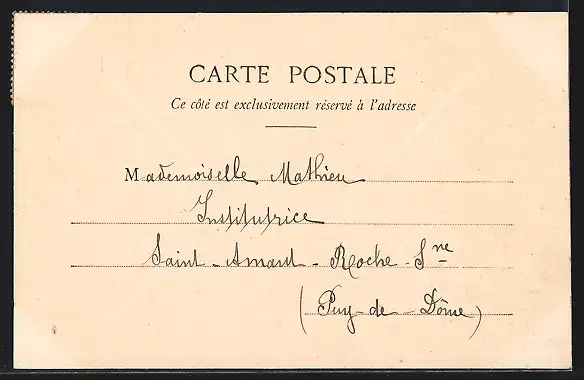 CARTE POSTALE
Ce côté est exclusivement réservé à l'adresse
Mademoiselle Mathieu
Institutrice
Saint-Amand-Roche-Sne
(Puy-de-Dôme)